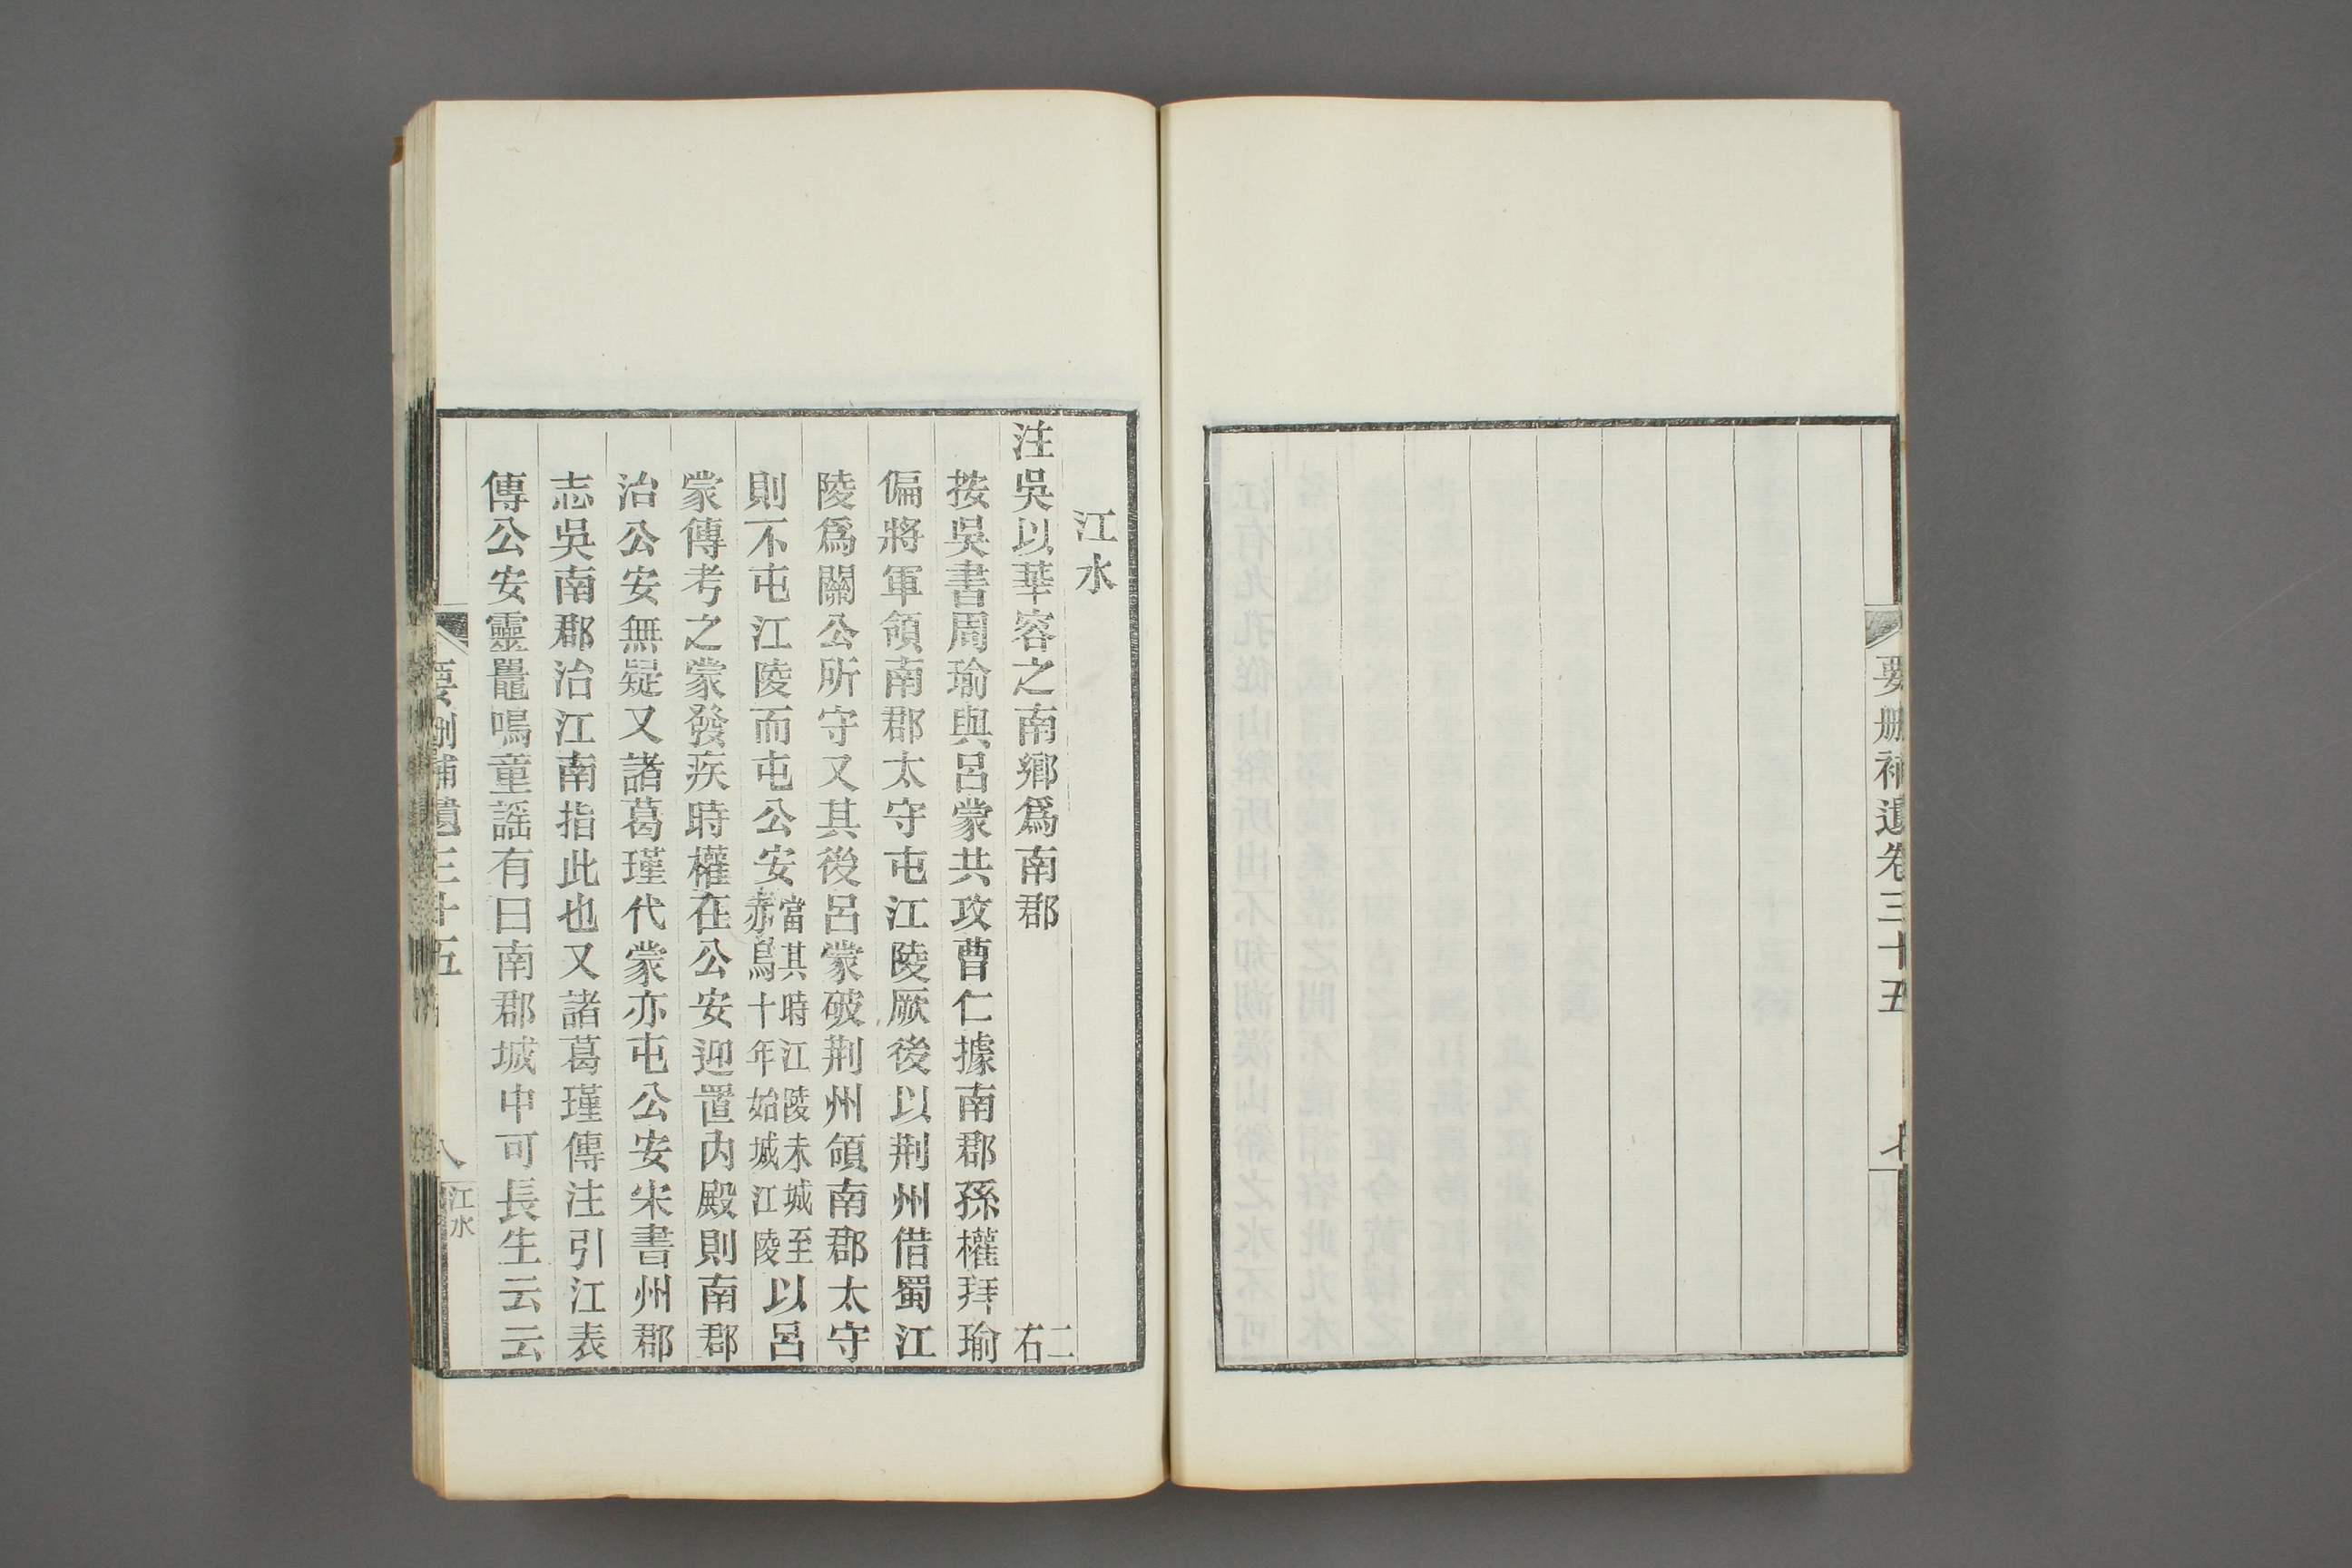 要刪補遺卷三十五
江水
注吳以華容之南鄉爲南郡 二右
按吳書周瑜與呂蒙共攻曹仁據南郡孫權拜瑜
偏將軍領南郡太守屯江陵厥後以荆州借蜀江
陵爲關公所守又其後呂蒙破荆州領南郡太守
則不屯江陵而屯公安當其時江陵未城至赤烏十年始城江陵以呂
蒙傳考之蒙發疾時權在公安迎置內殿則南郡
治公安無疑又諸葛瑾代蒙亦屯公安宋書州郡
志吳南郡治江南指此也又諸葛瑾傳注引江表
傳公安靈鼉鳴童謡有曰南郡城中可長生云云
要刪補遺 三十五 八 江水